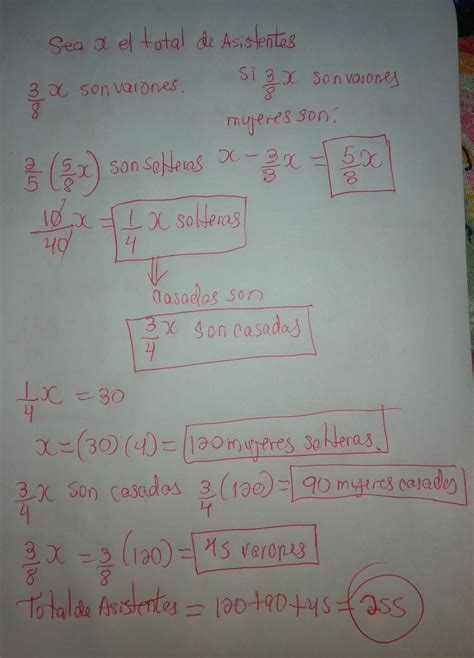 Sea x el total de Asistentes
3/8 x son varones.
si 3/8 x son varones
mujeres son:
x - 3/8 x = 5/8 x
2/5 (5/8 x) son solteras
10/40 x = 1/4 x solteras
⇓
casadas son
3/4 x son casadas
1/4 x = 30
x = (30) (4) = 120 mujeres solteras.
3/4 x son casadas 3/4 (120) = 90 mujeres casadas
3/8 x = 3/8 (120) = 45 varones
Total de Asistentes = 120+90+45 = 255